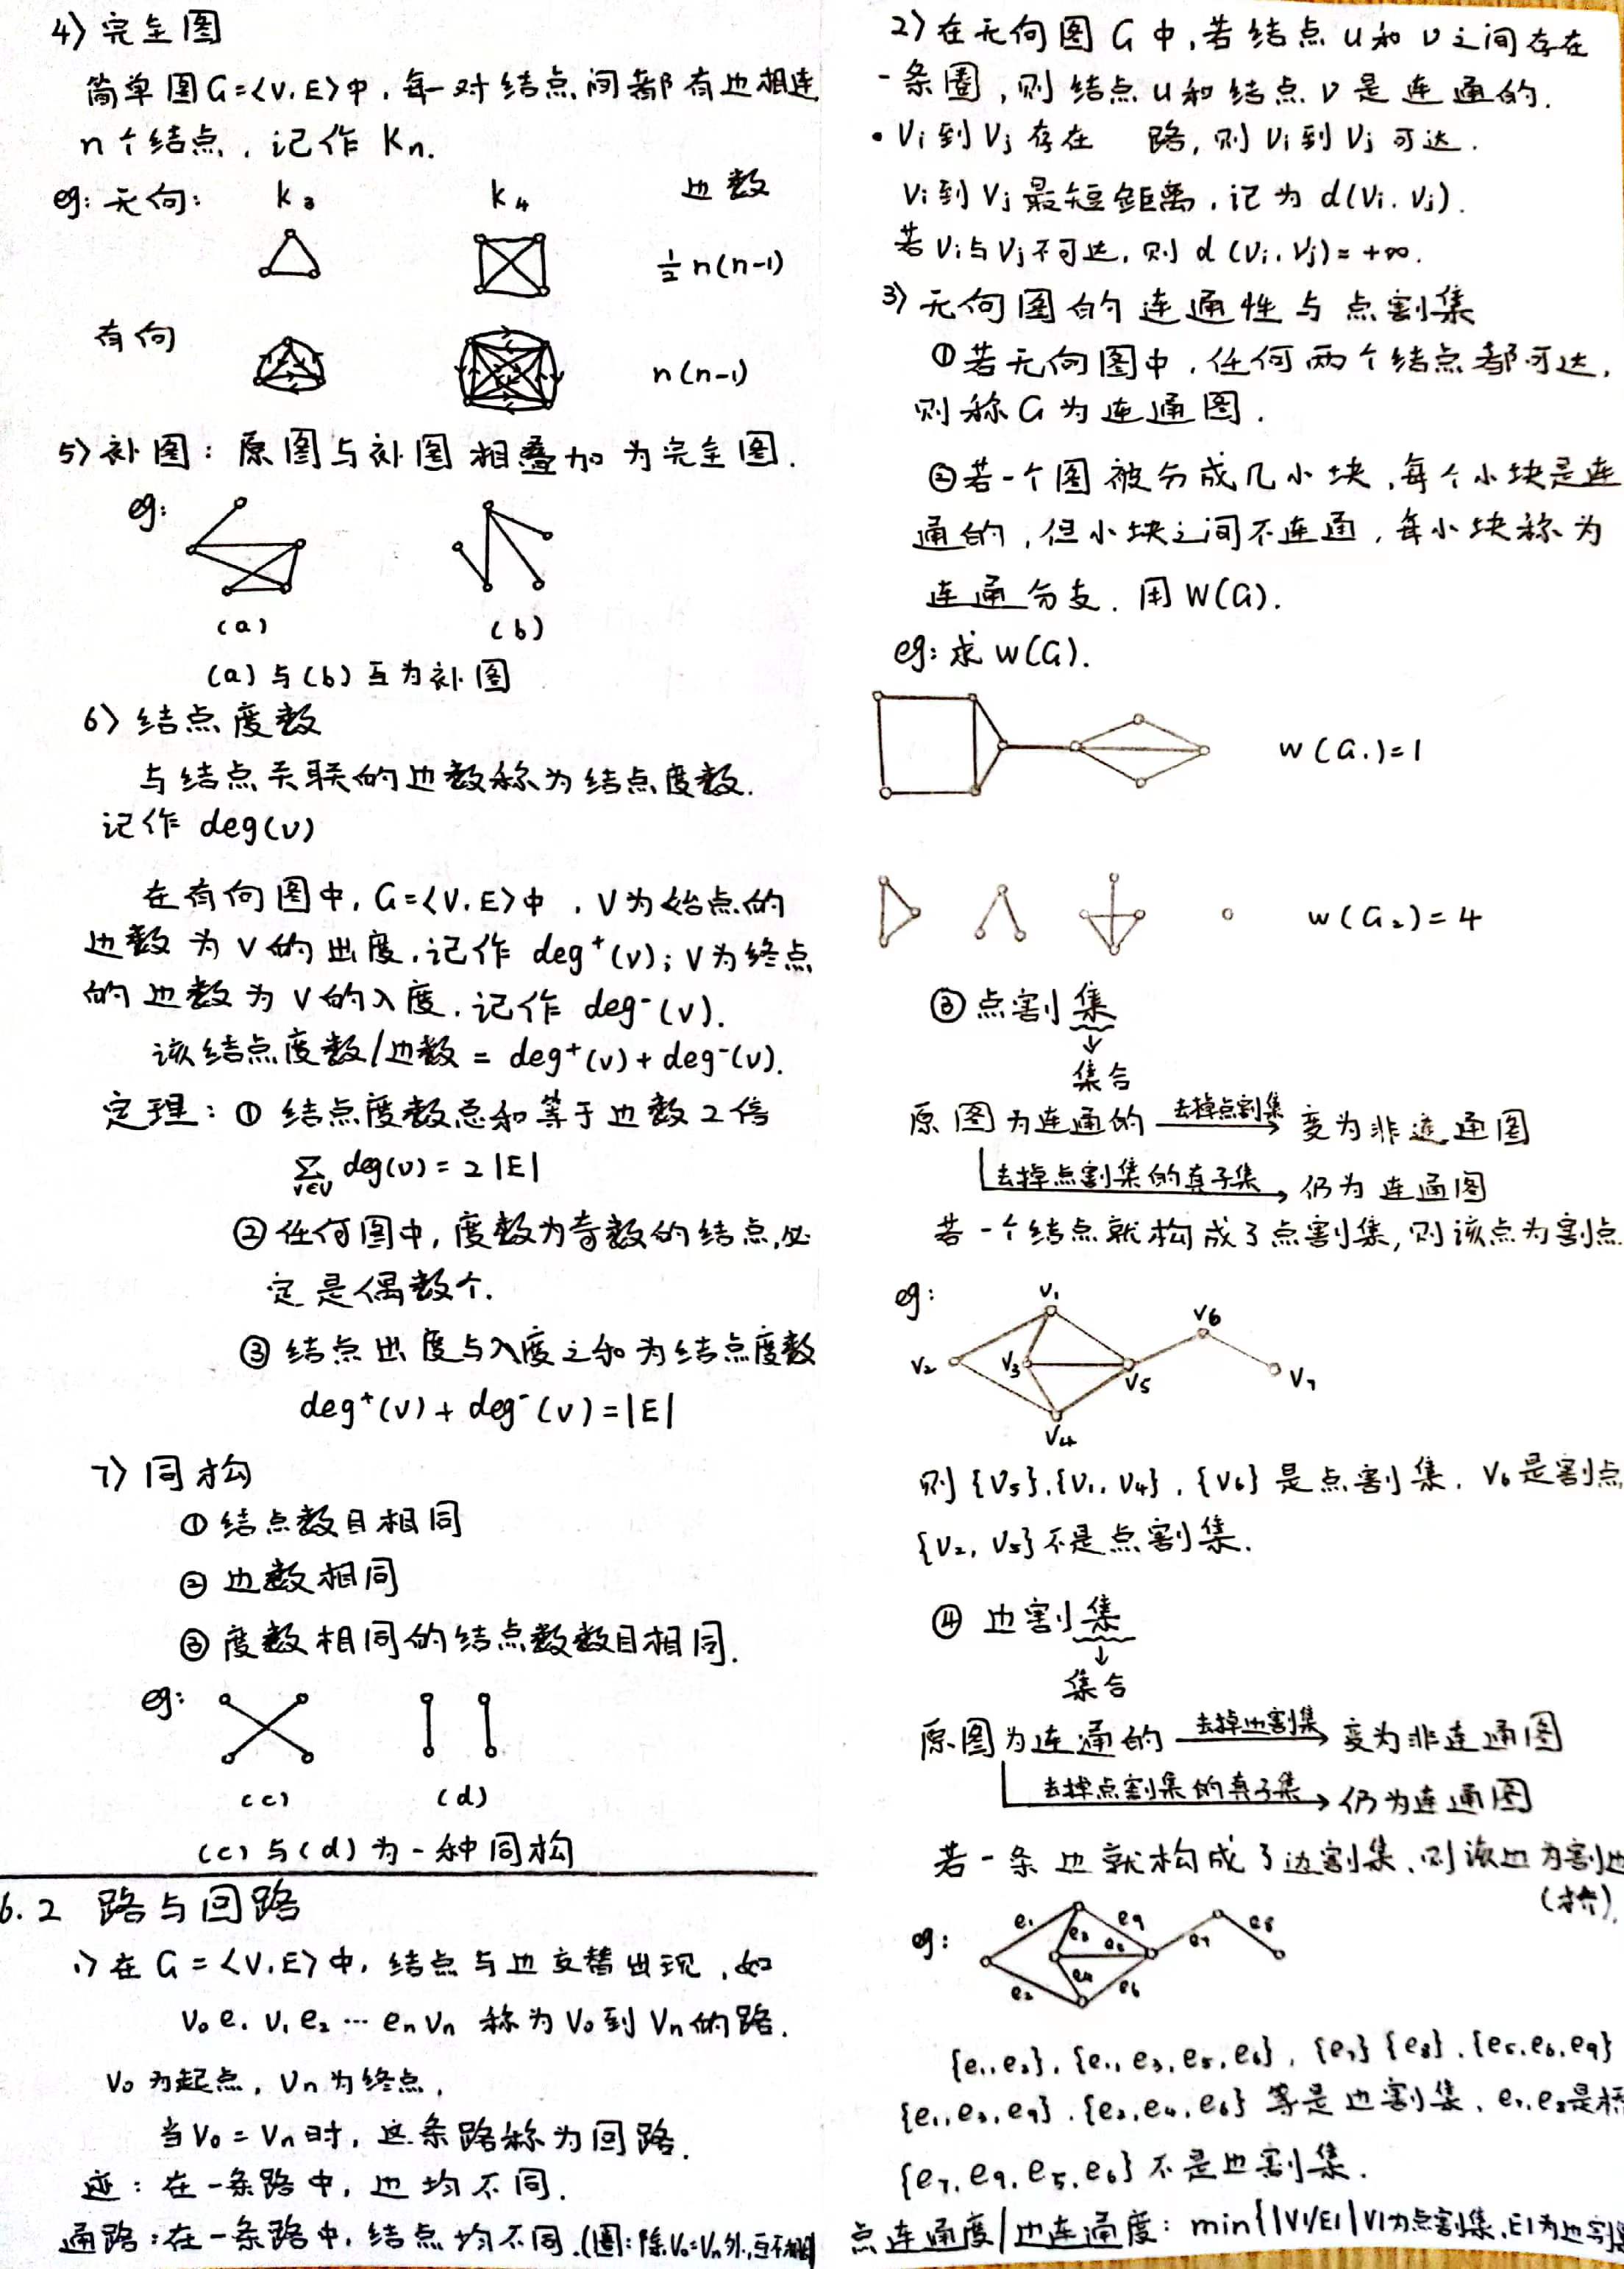 4) 完全图
简单图G=<V.E>中，每一对结点间都有边相连
n个结点，记作 Kn.
eg: 无向: K3 K4 边数
½n(n-1)
有向
n(n-1)
5) 补图：原图与补图相叠加为完全图.
eg:
(a) (b)
(a)与(b)互为补图
6) 结点度数
与结点关联的边数称为结点度数.
记作 deg(v)
在有向图中, G=<V.E>中, V为始点的
边数为V的出度.记作 deg⁺(v); V为终点
的边数为V的入度.记作 deg⁻(v).
该结点度数/边数 = deg⁺(v)+deg⁻(v).
定理：① 结点度数总和等于边数2倍
∑ deg(v) = 2|E|
v∈V
② 任何图中, 度数为奇数的结点,必
定是偶数个.
③ 结点出度与入度之和为结点度数
deg⁺(v)+deg⁻(v)=|E|
7) 同构
① 结点数目相同
② 边数相同
③ 度数相同的结点数数目相同.
eg:
(c) (d)
(c)与(d)为一种同构
6.2 路与回路
1) 在G=<V.E>中, 结点与边交替出现, 如
V₀e₁V₁e₂…enVn 称为V₀到Vn的路.
V₀为起点, Vn为终点,
当V₀=Vn时, 这条路称为回路.
迹：在一条路中, 边均不同.
通路：在一条路中, 结点均不同.(圈:除V₀=Vn外,
2) 在无向图G中,若结点u和v之间存在
一条圈,则结点u和结点v是连通的.
• Vi到Vj存在 路,则Vi到Vj可达.
Vi到Vj最短距离,记为d(Vi.Vj).
若Vi与Vj不可达,则d(Vi.Vj)=+∞.
3) 无向图的连通性与点割集
①若无向图中,任何两个结点都可达,
则称G为连通图.
②若一个图被分成几小块,每个小块是连
通的,但小块之间不连通,每小块称为
连通分支. 用W(G).
eg: 求W(G).
W(G₁)=1
W(G₂)=4
③ 点割集
↓
集合
原图为连通的 去掉点割集→ 变为非连通图
去掉点割集的真子集→ 仍为连通图
若一个结点就构成了点割集,则该点为割点
eg:
V₁
V₆
V₂ V₃ V₅ V₇
V₄
则{V₅}.{V₁.V₄}.{V₆}是点割集. V₆是割点
{V₂,V₅}不是点割集.
④ 边割集
↓
集合
原图为连通的 去掉边割集→ 变为非连通图
去掉点割集的真子集→ 仍为连通图
若一条边就构成了边割集,则该边为割边
(桥).
eg:
e₁ e₉ e₈
e₃ e₅ e₇
e₄
e₂ e₆
{e₁.e₂}.{e₁.e₃.e₅.e₆}.{e₇}{e₈}.{e₅.e₆.e₉}
{e₁.e₃.e₉}.{e₂.e₄.e₆}等是边割集. e₇.e₈是桥
{e₇.e₉.e₅.e₆}不是边割集.
点连通度/边连通度：min{|V1/E1|V1为点割集,E1为边割集